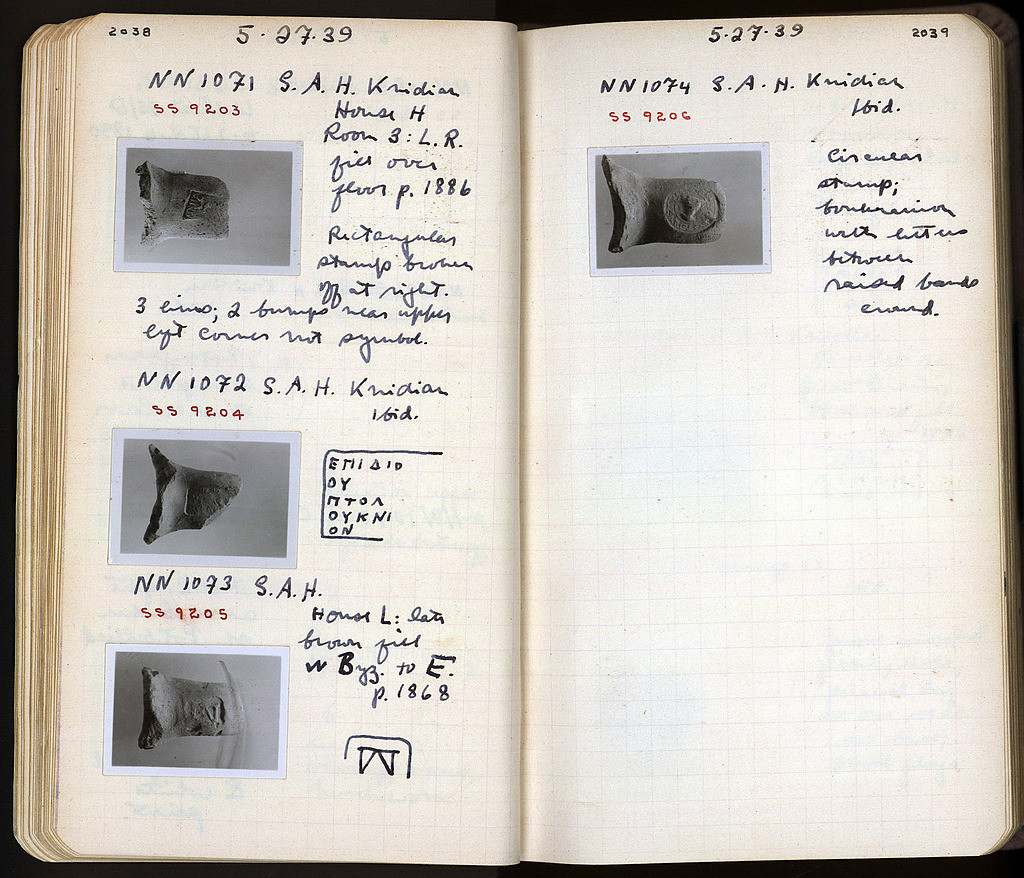 2038
5·27·39
NN 1071 S.A.H. Knidian
SS 9203
House H
Room 3: L.R.
fill over
floor p. 1886
Rectangular
stamp broken
off at right.
3 lines; 2 bumps near upper
left corner not symbol.
NN 1072 S.A.H. Knidian
SS 9204
Ibid.
ΕΠΙΔΙΟ
ΟΥ
ΠΤΟΛ
ΟΥΚΝΙ
ΟΝ
NN 1073 S.A.H.
SS 9205
House L: late
brown fill
w Byz. to E.
p. 1868
5·27·39
2039
NN 1074 S.A.H. Knidian
SS 9206
Ibid.
Circular
stamp;
boukranion
with letters
between
raised bands
around.